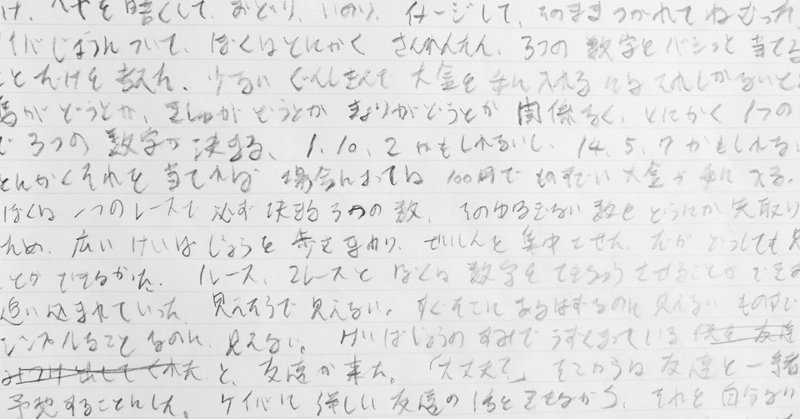 け、ヘヤを暗くして、おどり、いのり、イメージして、そのままつかれてねむった
イバじょうについて、ぼくはとにかく さんれんたん、3つの数字をバシっと当てる
ことだけを考えた。少ない ぐんしきんで 大金を手に入れるにはそれしかないと
馬がどうとか、きしゅがどうとか きょりがどうとか 関係なく、とにかく 1つの
で 3つの数字が決まる、1、10、2かもしれないし、14、5、7かもしれない
とにかくそれを当てれば 場合によっては 100円で ものすごい大金が手に入る。
ぼくは一つのレースで必ず決まる3つの数、そのゆるぎない数をどうにか先取り
ため、広いけいばじょうを歩きまわり、せいしんを集中させた。だがどうしても見
ことができなかった。1レース、2レースと ぼくは 数字を てきちゅうさせることができず
追い込まれていった。見えそうで見えない。すぐそこにあるはずなのに見えない。ものすご
シンプルなことなのに、見えない。けいばじょうのすみで うずくまっている 僕を友達
みつけ出してくれた と、友達が来た。「大丈夫?」そこからは 友達と一緒
予想することにした。ケイバに詳しい友達の話をききながら、それと自分の